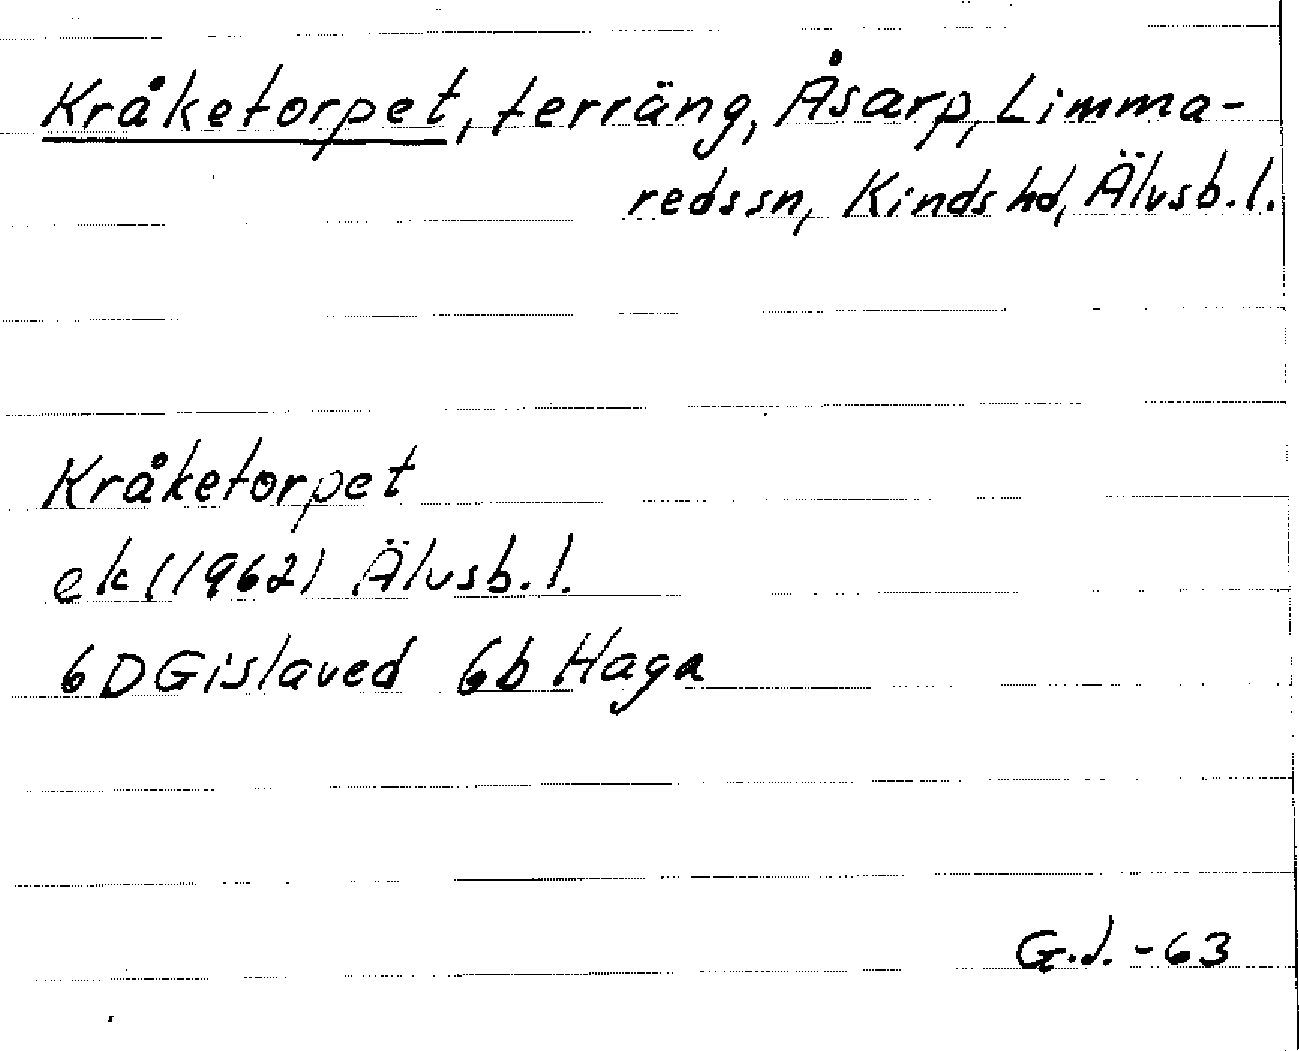 Kråketorpet, terräng, Åsarp, Limma-
redssn, Kinds hd, Älvsb. l.
Kråketorpet
ek (1962) Älvsb. l.
6D Gislaved 6b Haga
G.J. -63